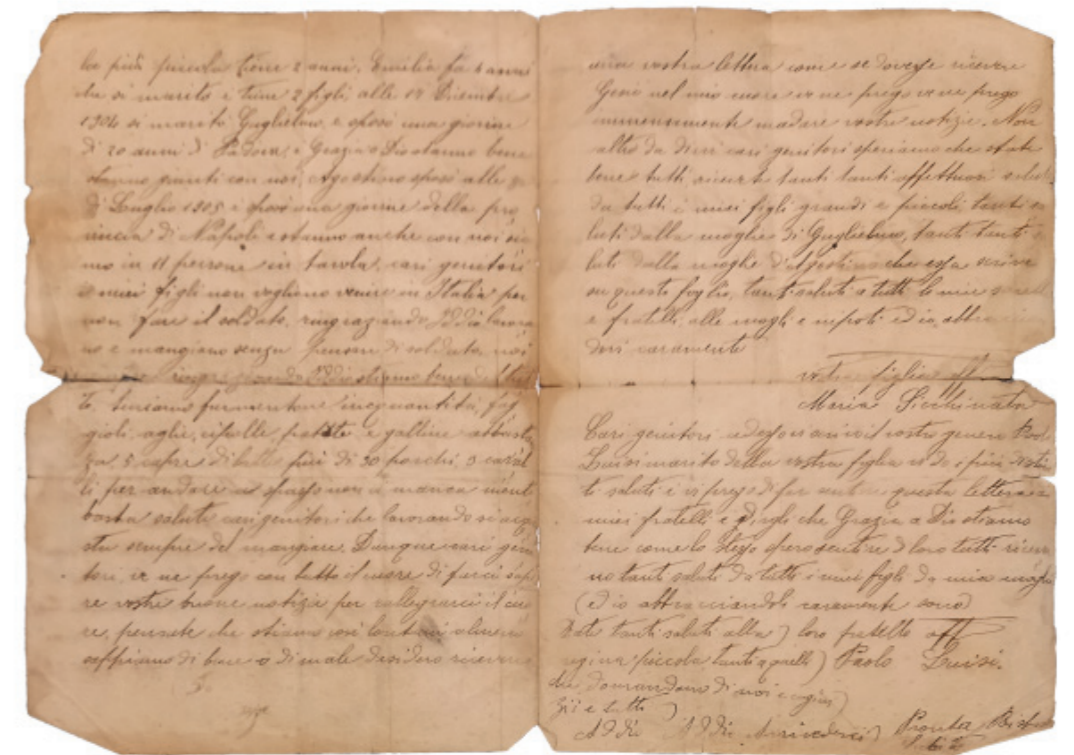 la più piccola tiene 2 anni. Emilia fa 6 anni
che si maritò e tiene 2 figli, alle 17 Dicembre
1904 si maritò Guglielmo, e sposò una giovine
di 20 anni di Padova, e Grazia a Dio stanno bene
stanno giunti con noi, Agostino sposò alle
di Luglio 1905 e sposò una giovine della pro
vincia di Napoli e stanno anche con noi sia
mo in 11 persone in tavola, cari genitori
i miei figli non vogliono venire in Italia per
non fare il soldato, ringraziando Iddio lavora
no e mangiano senza pensare di soldato, noi
ringraziando Iddio stiamo bene
te, teniamo formentone in quantità, fag
gioli, aglie, cipolle, patate e galline abbastan
za, 5 capre di latte più di 30 porchi, 3 caval
li per andare a spasso non ci manca nient
basta salute cari genitori che lavorando si acqui
sta sempre del mangiare. Dunque cari geni
tori, ve ne prego con tutto il cuore di farci sape
re vostre buone notizie per rallegrarci il cuo
re, pensate che stiamo così lontani almeno
sappiamo di bene o di male desidero ricevere
una vostra lettera come se dovesse ricevere
Gesù nel mio cuore ve ne prego ve ne prego
immensamente madare vostre notizie. Non
altro da dirvi cari genitori speriamo che state
bene tutti, ricevete tanti tanti affettuosi saluti
da tutti i miei figli grandi e piccoli, tanti sa
luti dalla moglie di Guglielmo, tanti tanti sa
luti dalla moglie d'Agostino che essa scrive
su questo foglio, tanti saluti a tutti le mie sorelle
e fratelli, alle mogli e nipoti ed io abbraccian
dovi caramente
vostra figlia aff
Maria Secchinata
Cari genitori adesso scrivo il vostro genero Paolo
Luisi marito della vostra figlia vi do
ti saluti e vi prego di far sentire questa lettera a
miei fratelli e dirgli che Grazia a Dio stiamo
bene come lo stesso spero sentire di loro tutti riceva
no tanti saluti da tutti i miei figli da mia moglie
(Ed io abbracciandoli caramente sono)
Date tanti saluti alla) loro fratello aff
regina piccola tanti a quelli) Paolo Luisi.
che domandano di noi e cugini)
Zii e tutti)
Addio Addio Arrivederci) Pronta